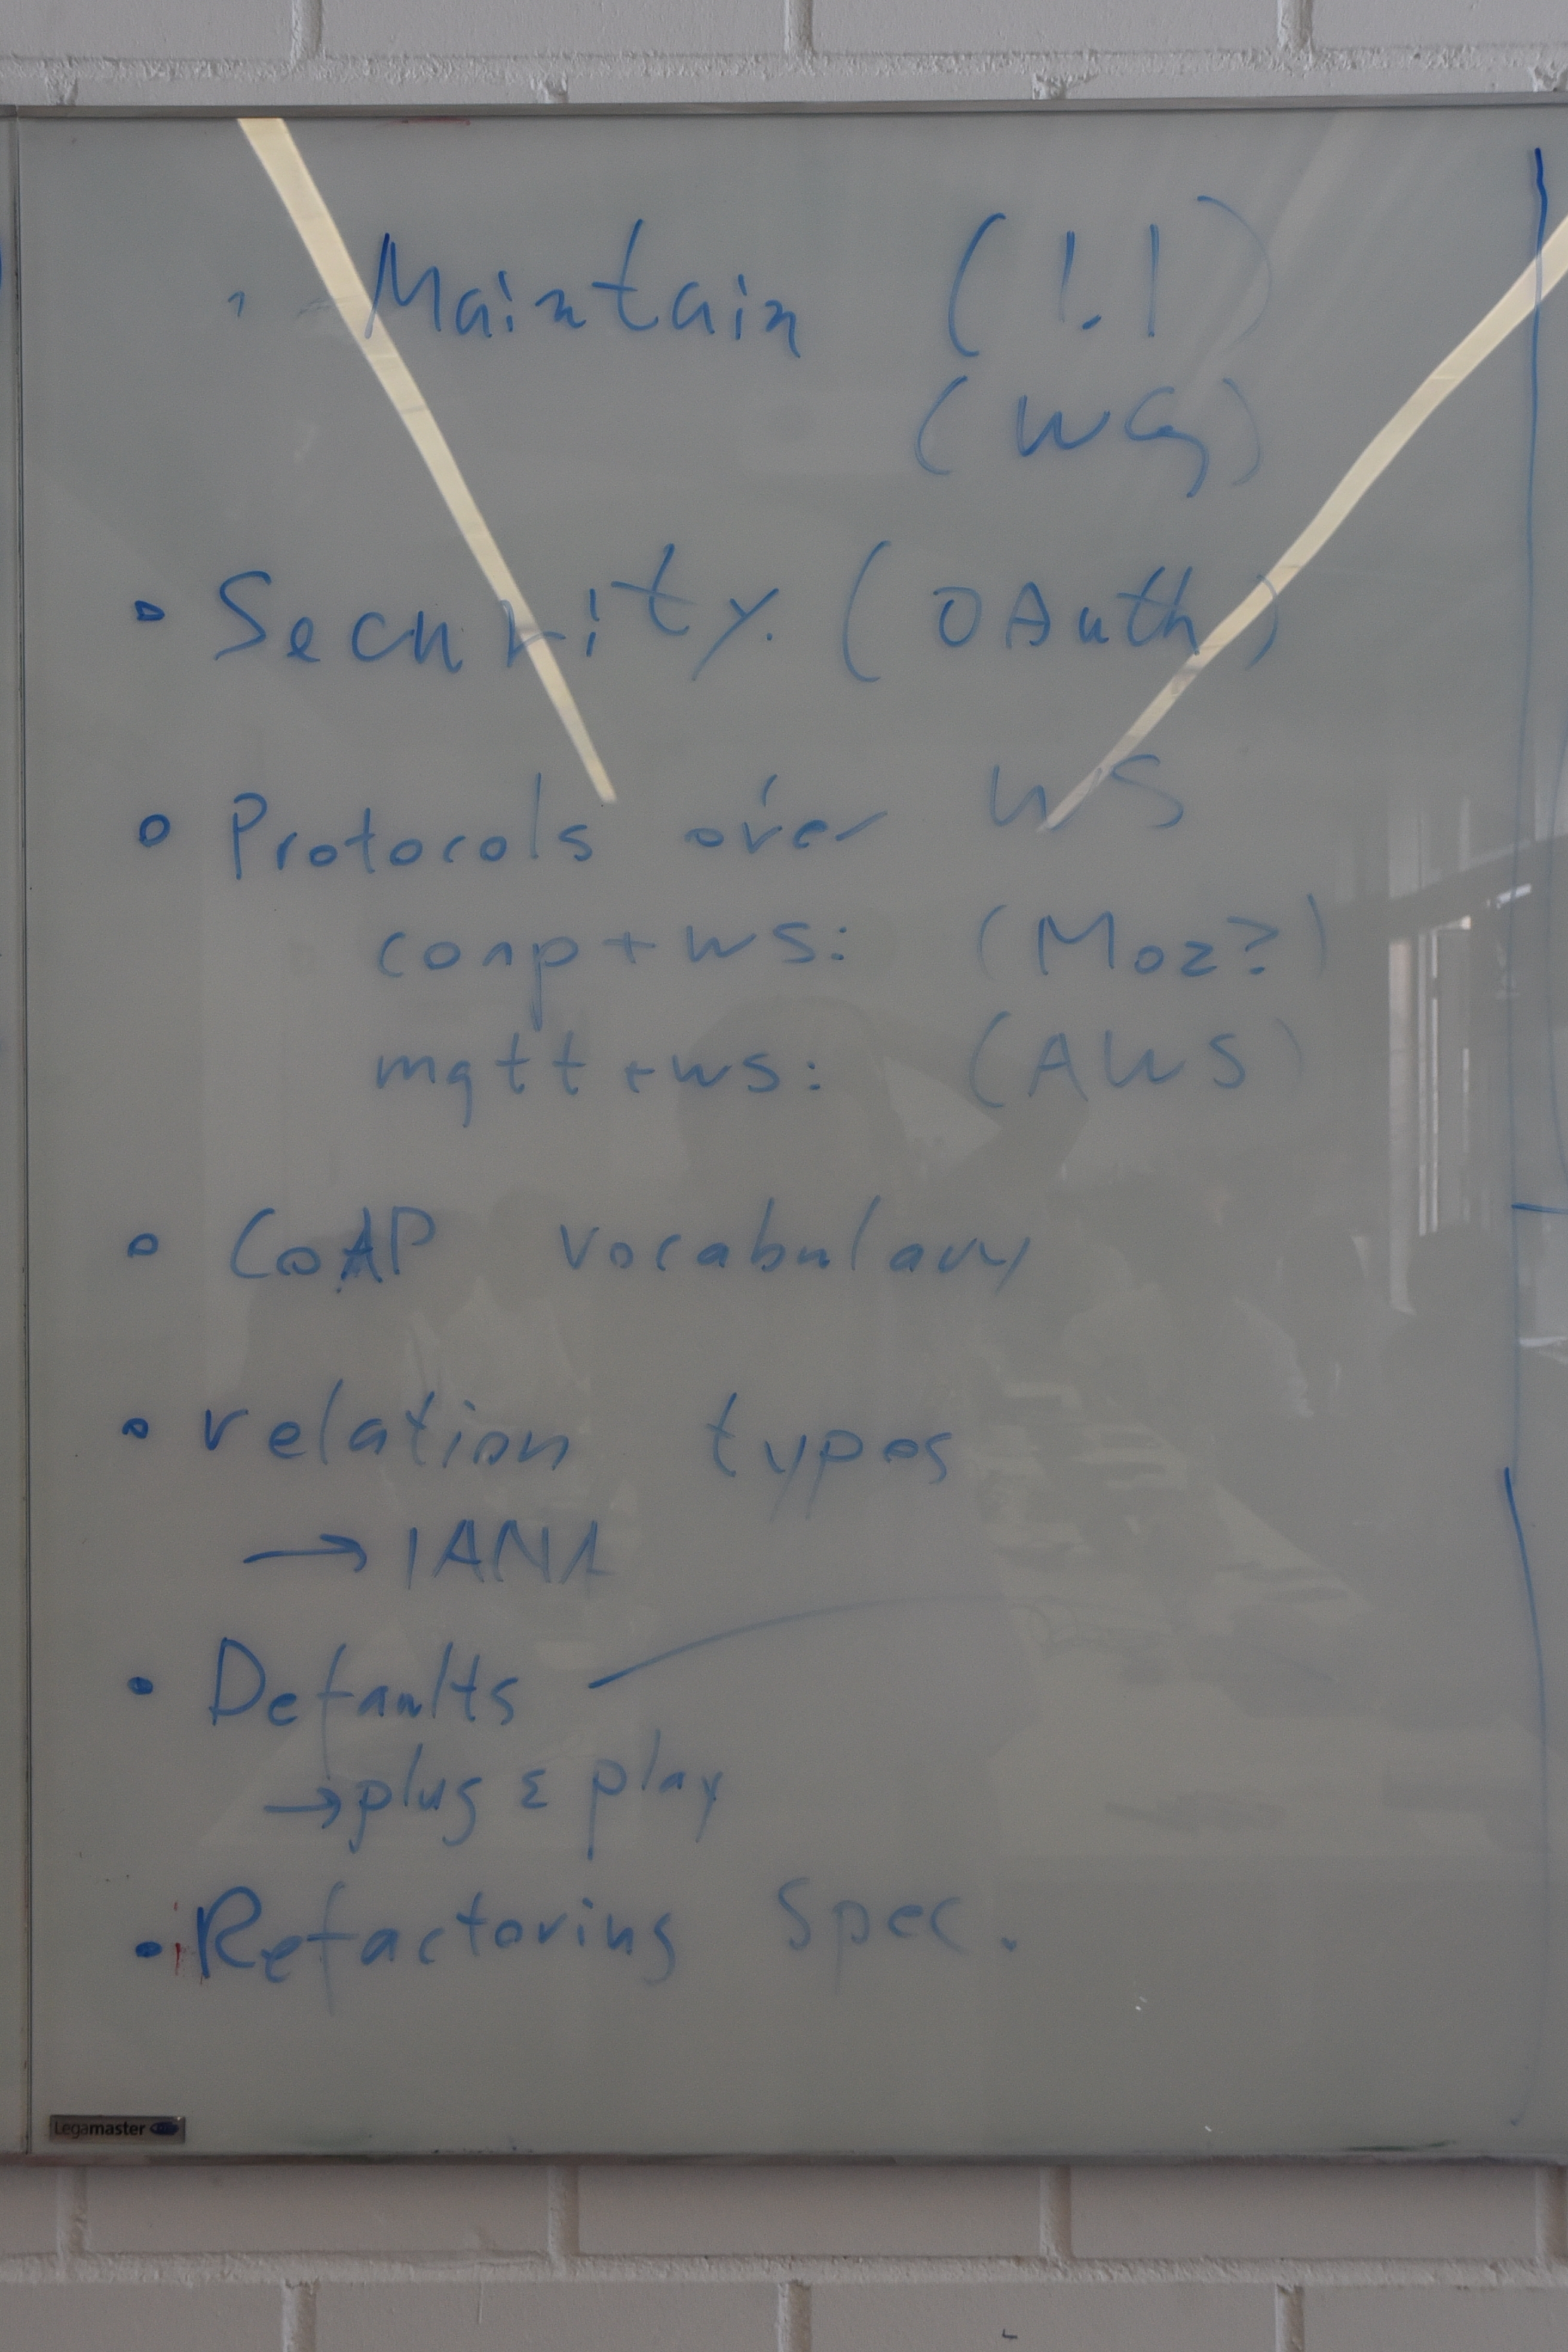 Maintain (1.1)
(WG)
• Security. (OAuth)
• Protocols over WS
coap+ws: (Moz?)
mqtt+ws: (AWS)
• CoAP vocabulary
• relation types
→ IANA
• Defaults
→ plug & play
• Refactoring Spec.
Legamaster